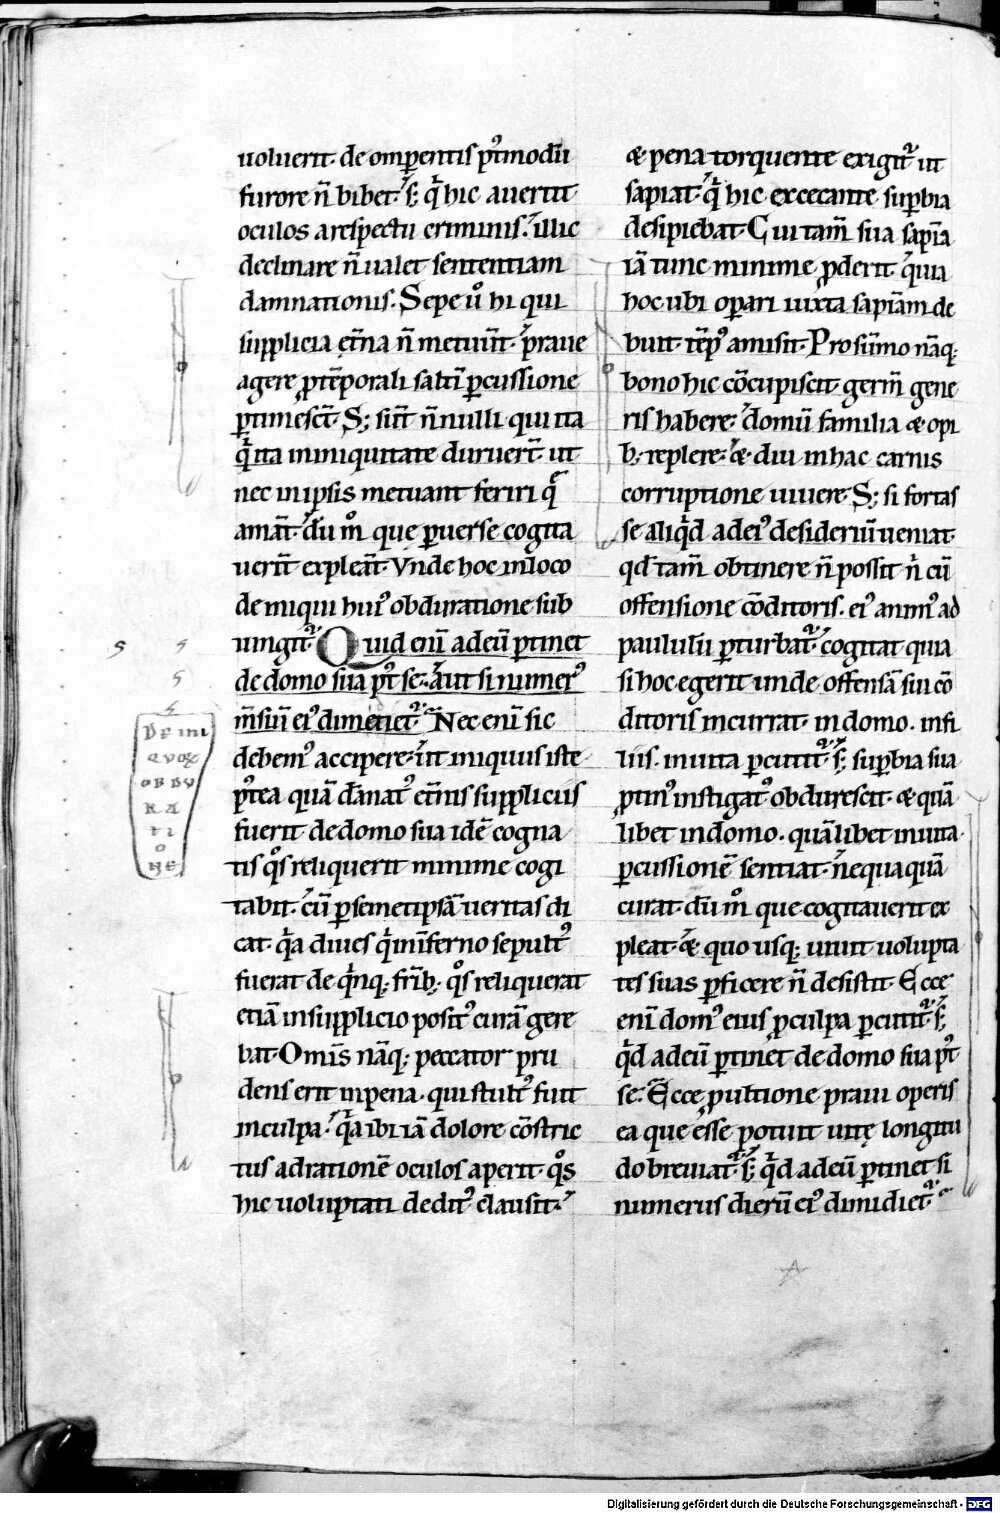 uoluerit. de om̅ptentis p̅tmodū
furore n̄ bibet. s; q̇ hic auertit
oculos a respectu criminis. illic
declinare n̄ ualet sententiam
damnationis. Sepe u̇ hi qui
supplicia et̄na n̄ metuūt. praue
agere ꝓ tēporali saltī ꝑcussione
ꝑtimesc̄t. S; sūt n̄nulli qui ita
q̇ ita in iniquitate duruer̄t. ut
nec in ipsis metuant feriri q̄
amāt. dū m̊ que ꝑuerse cogita
uerīt expleāt. Vnde hoc in loco
de iniqui hui᷒ obduratione sub
iungit᷑. Quid eni̅ ad eū ꝑtinet
de domo sua p᷒t se. aut si numer᷒
m̄siū ei᷒ dimetiet᷑. Nec eni̅ sic
debem᷒ accipere. ut iniquus iste
p᷒tea quā dānat᷒ et̄nis suppliciis
fuerit de domo sua idē cogna
tis q̊s reliquerit minime cogi
tabit. cū ꝑ semetipsā ueritas di
cat. q̇a diues q̇ in īferno sepult᷒
fuerat de q̇nq; fr̄ib; q̊s reliquerat
etiā in supplicio posit᷒ curā gere
bat. Om̄is nāq; peccator pru
dens erit in pena. qui stult᷒ fuit
in culpa. q̇a ibi iā dolore cōstric
tus ad rationē oculos aperit. q̊s
hic uoluptati dedit᷒ clausit.
& pena torquente exigit᷑ ut
sapiat. q̇ hic excecante suꝑbia
desipiebat. Cui tam̄ sua sapīa
iā tunc minime ꝓderit. quia
hoc ubi oꝑari iuxta sapīam de
buit. tēp᷒ amisit. Pro sūmo nāq;
bono hic cōcupiscit germ̄ gene
ris habere. domū familia & opi
b; replere. & diu in hac carnis
corruptione uiuere. S; si fortas
se aliq̇d ad ei᷒ desideriū ueniat.
qd̄ tam̄ obtinere n̄ possit n̄ cū
offensione cōditoris. ei᷒ anim᷒ ad
paululū ꝑturbat᷑. cogitat quia
si hoc egerit unde offensā sui cō
ditoris incurrat. in domo. in fi
liis. in uita ꝑcutit᷑. s; suꝑbia sua
ꝓtin᷒ instigat᷒ obdurescit. & quā
libet in domo. quālibet in uita
ꝑcussionē sentiat. nequaquā
curat. dū m̊ que cogitauerit ex
pleat. & quo usq; uiuit uolupta
tes suas ꝑficere n̄ desistit. Ecce
eni̅ dom᷒ eius ꝓ culpa ꝑcutit᷑. s;
q̇d ad eū ꝑtinet de domo sua p᷒t
se. Ecce ꝓ ultione praui operis
ea que esse potuit uitę longitu
do breuiat᷑. s; q̇d ad eū ꝑtinet si
numerus dierū ei᷒ dimidiet᷑.
DE INI
QVOR
OBDV
RA
TI
O
NE